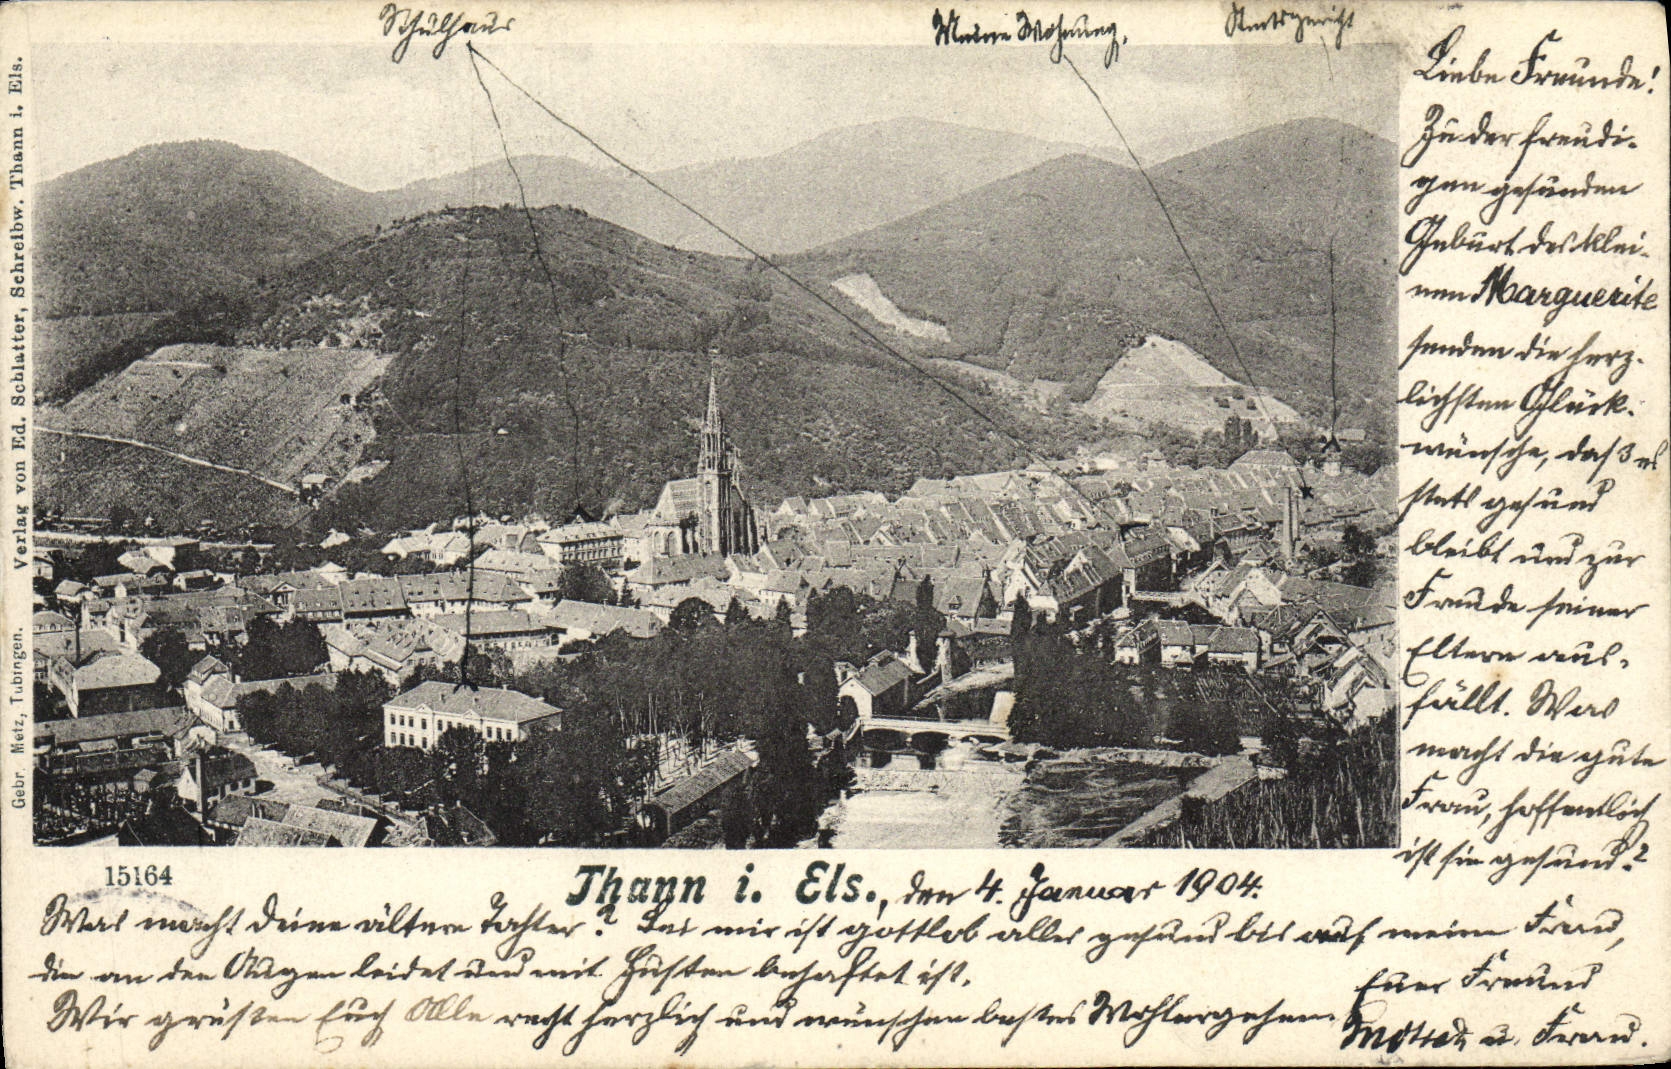 Schulhaus
Meine Wohnung.
Amtsgericht
Verlag von Ed. Schlatter, Schreibw. Thann i. Els.
Gebr. Metz, Tübingen.
Liebe Freunde!
Zu der freudi-
gen gesunden
Geburt des klei-
nen Marguerite
senden die herz-
lichsten Glück-
wünsche, daß es
stets gesund
bleibt und zur
Freude seiner
Eltern aus-
fällt. Was
macht die gute
Frau, hoffentlich
ist sie gesund?
15164
Thann i. Els., den 4. Januar 1904.
Was macht deine ältere Tochter? Bei mir ist gottlob alles gesund bis auf meine Frau,
die an den Augen leidet und mit Husten behaftet ist.
Wir grüßen Euch Alle recht herzlich und wünschen bestes Wohlergehen
Euer Freund
u. Frau.